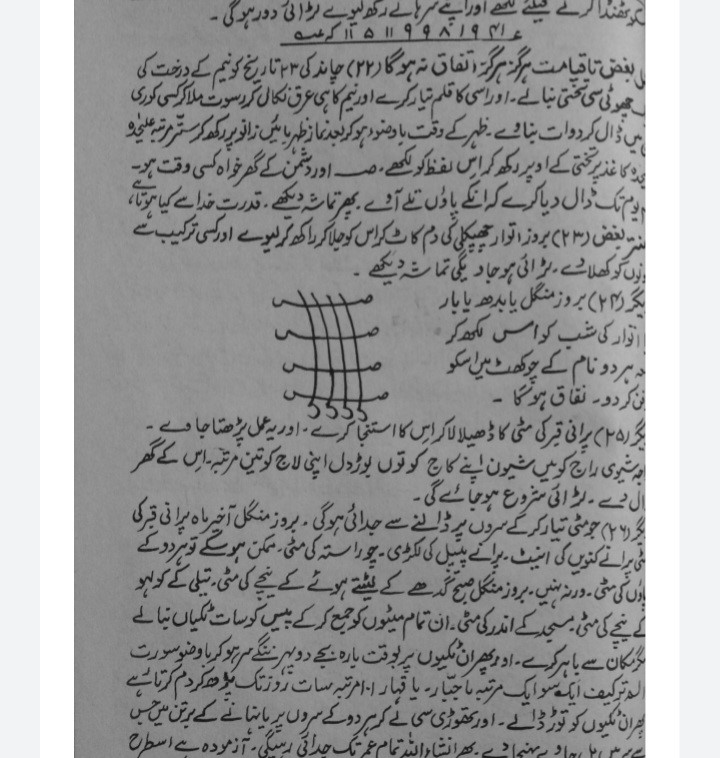 کو ٹھنڈا کرنے کیلئے لکھے اور اپنے سرہانے رکھ لیوے لڑائی دور ہوگی۔
بغض تا قیامت ہرگز ہرگز اتفاق نہ ہوگا (۲۲) چاند کی ۲۳ تاریخ کو نیم کے درخت کی
چھوٹی سی تختی بنالے۔ اور اسی کا قلم تیار کرے اور نیم کا ہی عرق نکال کر رسوت ملا کر کسی کوری
میں ڈال کر دوات بناوے۔ ظہر کے وقت باوضو ہو کر بعد نماز ظہر بائیں زانو پر رکھ کر ستر مرتبہ علیحدہ
کاغذ پر تختی کے اوپر رکھ کر اس لفظ کو لکھے۔ صـ اور دشمن کے گھر خواہ کسی وقت ہو۔
یوم تک ڈال دیا کرے کہ انکے پاؤں تلے آوے۔ پھر تماشہ دیکھے۔ قدرت خدا سے کیا ہوتا ہے
بغض (۲۳) بروز اتوار چھپکلی کی دم کاٹ کر اس کو جلا کر راکھ کر لیوے اور کسی ترکیب سے
کو کھلاوے۔ لڑائی ہو جاویگی تماشہ دیکھے۔
(۲۴) بروز منگل یا بدھ یا بار
اتوار کی شب کو اس لکھ کر
ہر دو نام کے چوکھٹ میں اسکو
کر دو۔ نفاق ہوگا۔
(۲۵) پرانی قبر کی مٹی کا ڈھیلا لا کر اس کا استنجا کرے۔ اور یہ عمل پڑھتا جاوے۔
شیوی راج کو میں شیون اپنے کاج کو توں بوڑ دل اپنی لاج کو تین مرتبہ۔ اس کے گھر
وے۔ لڑائی شروع ہو جائے گی۔
(۲۶) جو مٹی تیار کر کے سروں پر ڈالنے سے جدائی ہوگی۔ بروز منگل آخیر ماہ پرانی قبر کی
پرانے کنویں کی اینٹ۔ پرانے پیپل کی لکڑی۔ چوراستہ کی مٹی۔ ممکن ہو سکے تو ہر دو کے
پاؤں کی مٹی۔ ورنہ نہیں۔ بروز منگل صبح گدھے کے لیٹے ہوئے کے نیچے کی مٹی۔ تیلی کے کولہو
کے نیچے کی مٹی۔ مسجد کے اندر کی مٹی۔ ان تمام مٹیوں کو جمع کر کے پیس کو سات ٹکیاں بنالے
مکان سے باہر کرے۔ اور پھر ان ٹکیوں پر بوقت بارہ بجے دوپہر ننگے سر ہو کر باوضو سورت
الم ترکیف ایک سو ایک مرتبہ یا جبار۔ یا قہار ۱۰۱ مرتبہ سات روز تک پڑھ کر دم کرتا رہے
پھر ان ٹکیوں کو توڑ ڈالے۔ اور تھوڑی سی لے کر ہر دو کے سروں پر یا نہانے کے برتن میں جس
پھر انشاء اللہ تمام عمر تک جدائی رہیگی۔ آزمودہ ہے اسطرح